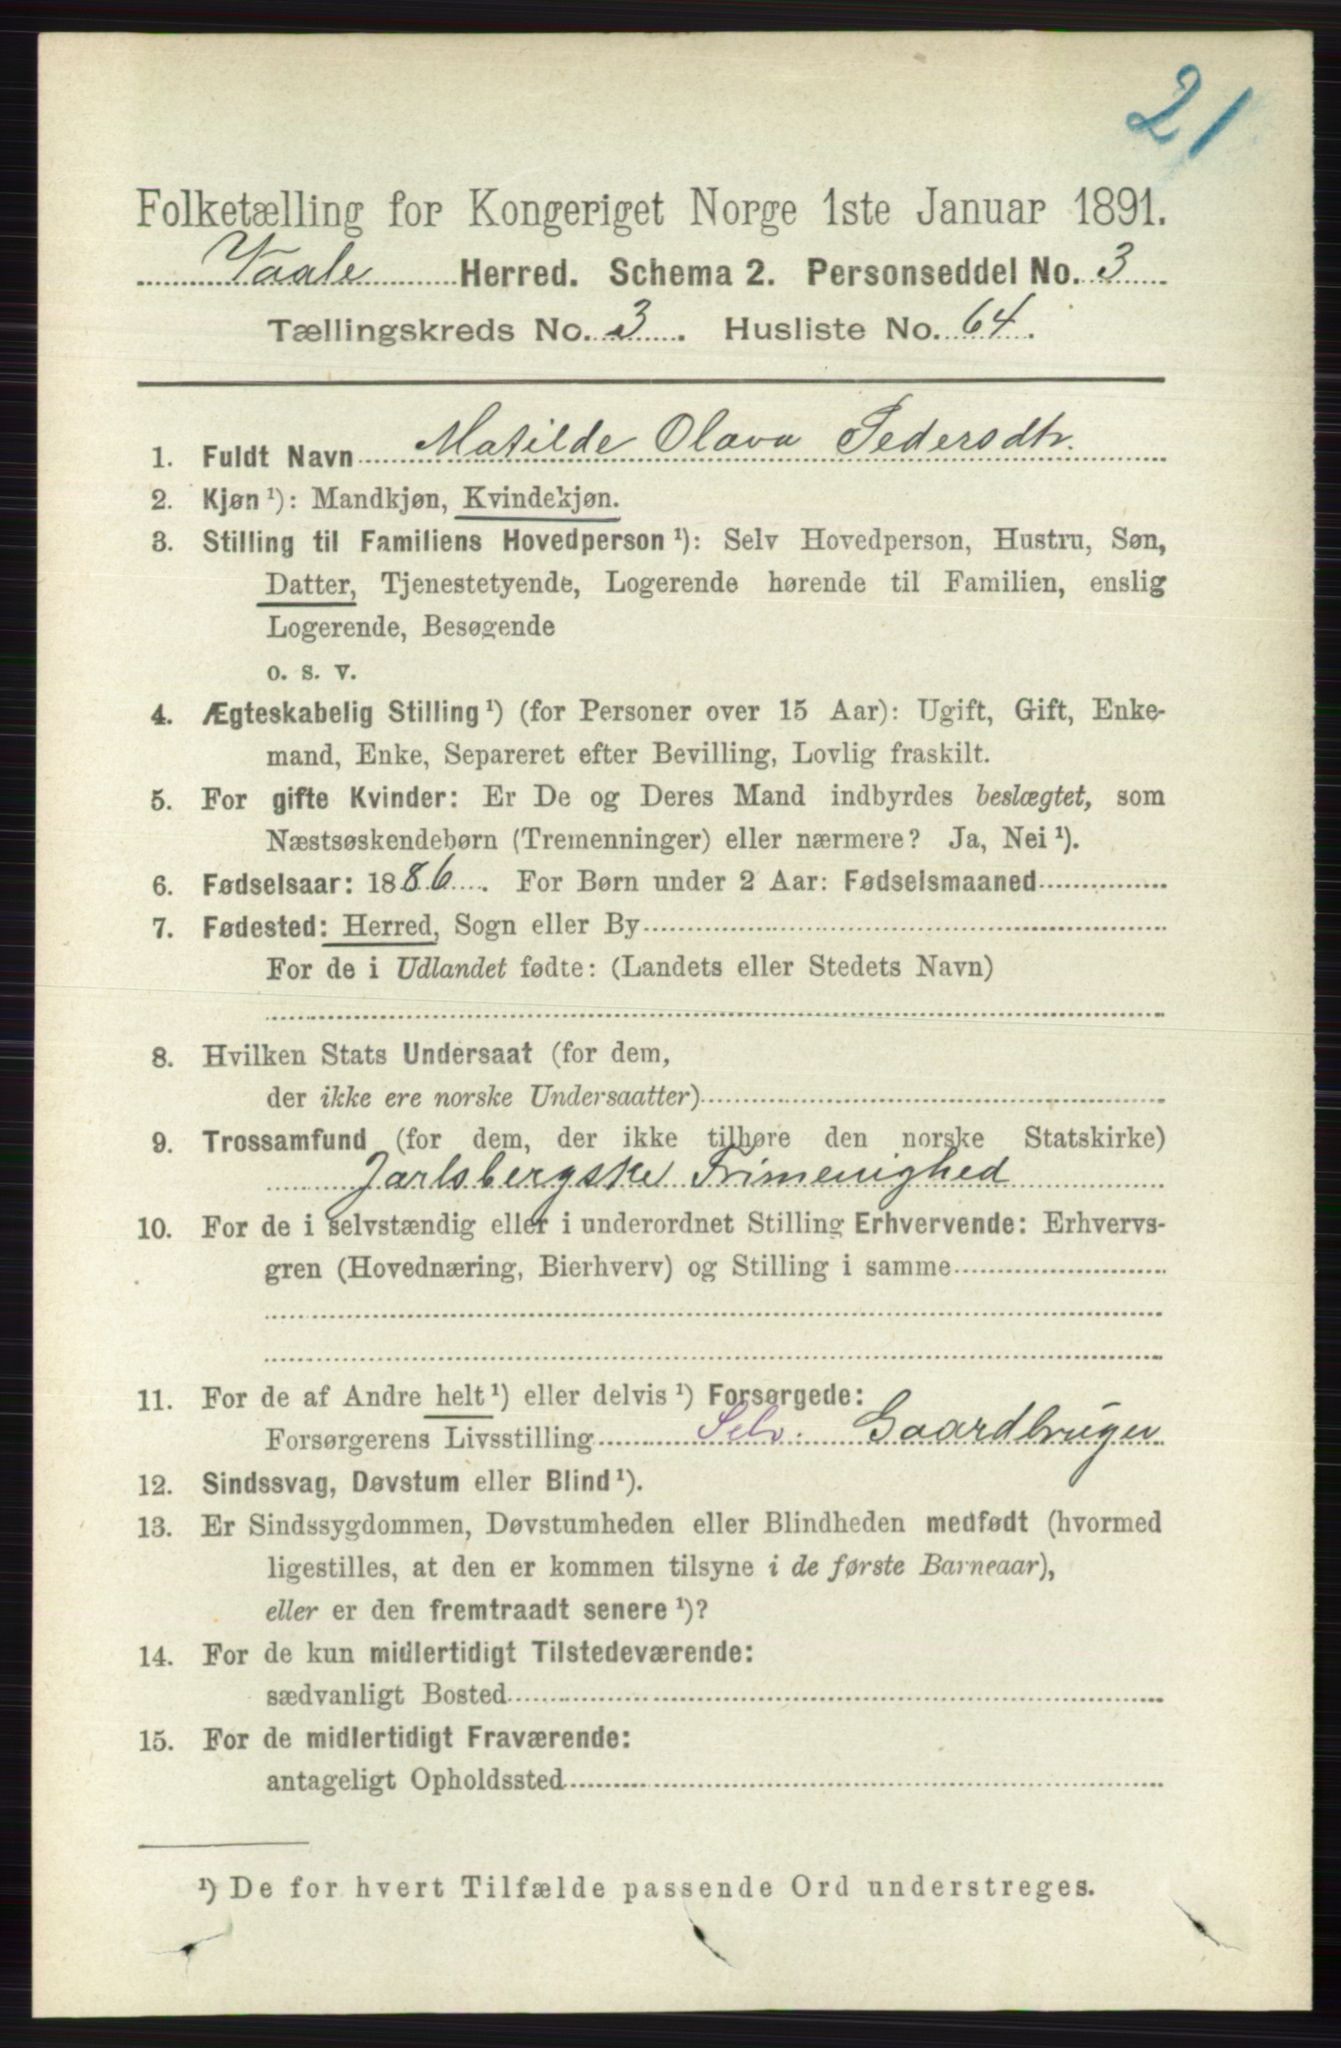 21
Folketælling for Kongeriget Norge 1ste Januar 1891.
Vaale Herred. Schema 2. Personseddel No. 3
Tællingskreds No. 3. Husliste No. 64.
1. Fuldt Navn Matilde Olava Pedersdtr.
2. Kjøn¹): Mandkjøn, Kvindekjøn.
3. Stilling til Familiens Hovedperson¹): Selv Hovedperson, Hustru, Søn,
Datter, Tjenestetyende, Logerende hørende til Familien, enslig
Logerende, Besøgende
o. s. v.
4. Ægteskabelig Stilling¹) (for Personer over 15 Aar): Ugift, Gift, Enke-
mand, Enke, Separeret efter Bevilling, Lovlig fraskilt.
5. For gifte Kvinder: Er De og Deres Mand indbyrdes beslægtet, som
Næstsøskendebørn (Tremenninger) eller nærmere? Ja, Nei¹).
6. Fødselsaar: 1886. For Børn under 2 Aar: Fødselsmaaned
7. Fødested: Herred, Sogn eller By
For de i Udlandet fødte: (Landets eller Stedets Navn)
8. Hvilken Stats Undersaat (for dem,
der ikke ere norske Undersaatter)
9. Trossamfund (for dem, der ikke tilhøre den norske Statskirke)
Jarlsbergske Frimenighed
10. For de i selvstændig eller i underordnet Stilling Erhvervende: Erhvervs-
gren (Hovednæring, Bierhverv) og Stilling i samme
11. For de af Andre helt¹) eller delvis¹) Forsørgede:
Forsørgerens Livsstilling Selv. Gaardbruger
12. Sindssvag, Døvstum eller Blind¹).
13. Er Sindssygdommen, Døvstumheden eller Blindheden medfødt (hvormed
ligestilles, at den er kommen tilsyne i de første Barneaar),
eller er den fremtraadt senere¹)?
14. For de kun midlertidigt Tilstedeværende:
sædvanligt Bosted
15. For de midlertidigt Fraværende:
antageligt Opholdssted
¹) De for hvert Tilfælde passende Ord understreges.